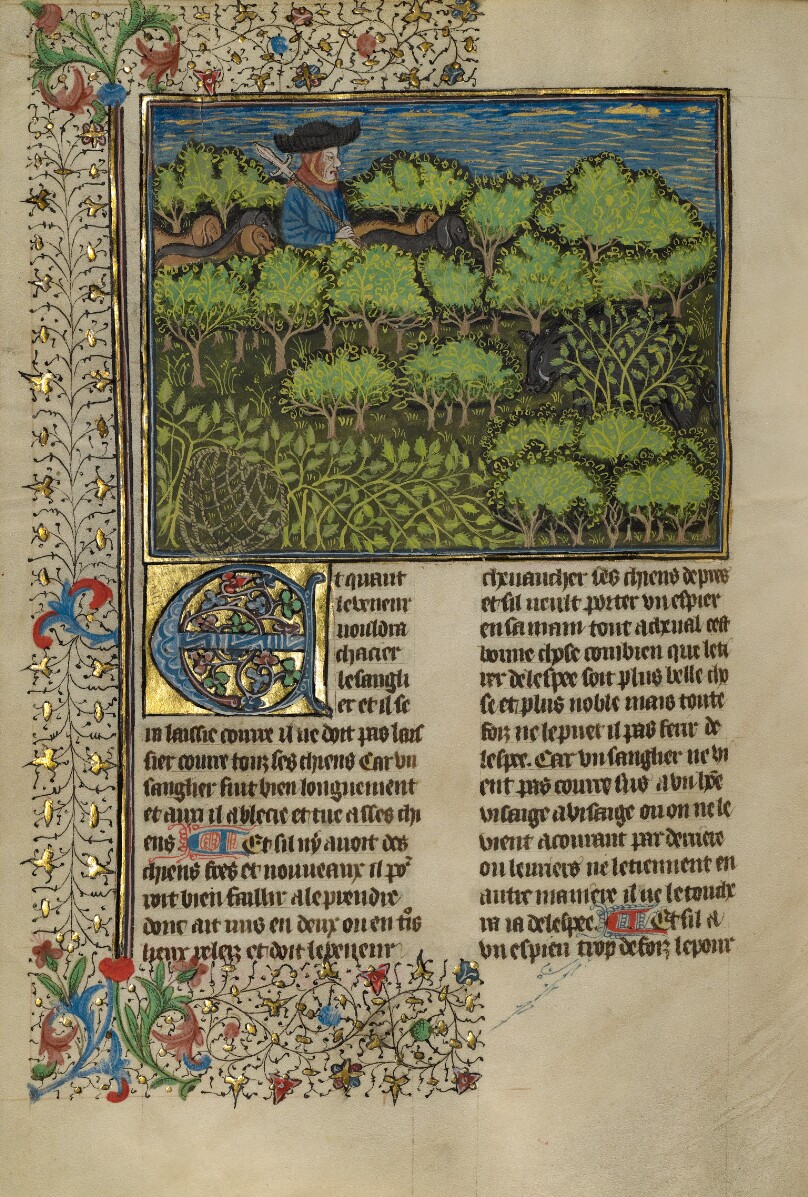 Et quant
le veneur
vouldra
chacier
le sangli
er et il se
ra laissie courre il ne doit pas lais
sier courre touz ses chiens Car un
sanglier fuit bien longuement
et aussi il blecie et tue asses chi
ens Et sil ny avoit des
chiens fres et nouveaux il po
roit bien faillir a le prendre
donc ait mis en deux ou en
lieux releiz et doit le veneur
chevaucher ses chiens de pres
et sil veult porter un espier
en sa main tout a cheval cest
bonne chose combien que leti
rer de lespee soit plus belle cho
se et plus noble mais toute
foiz ne le puet il pas ferir de
lespee. Car un sanglier ne vi
ent pas courre sus a un
visaige a visaige ou on ne le
vient acourant par derriere
ou levriers ne le tiennent en
autre maniere il ne le touche
ra ia de lespee Et sil a
un espieu trop de foiz le pour